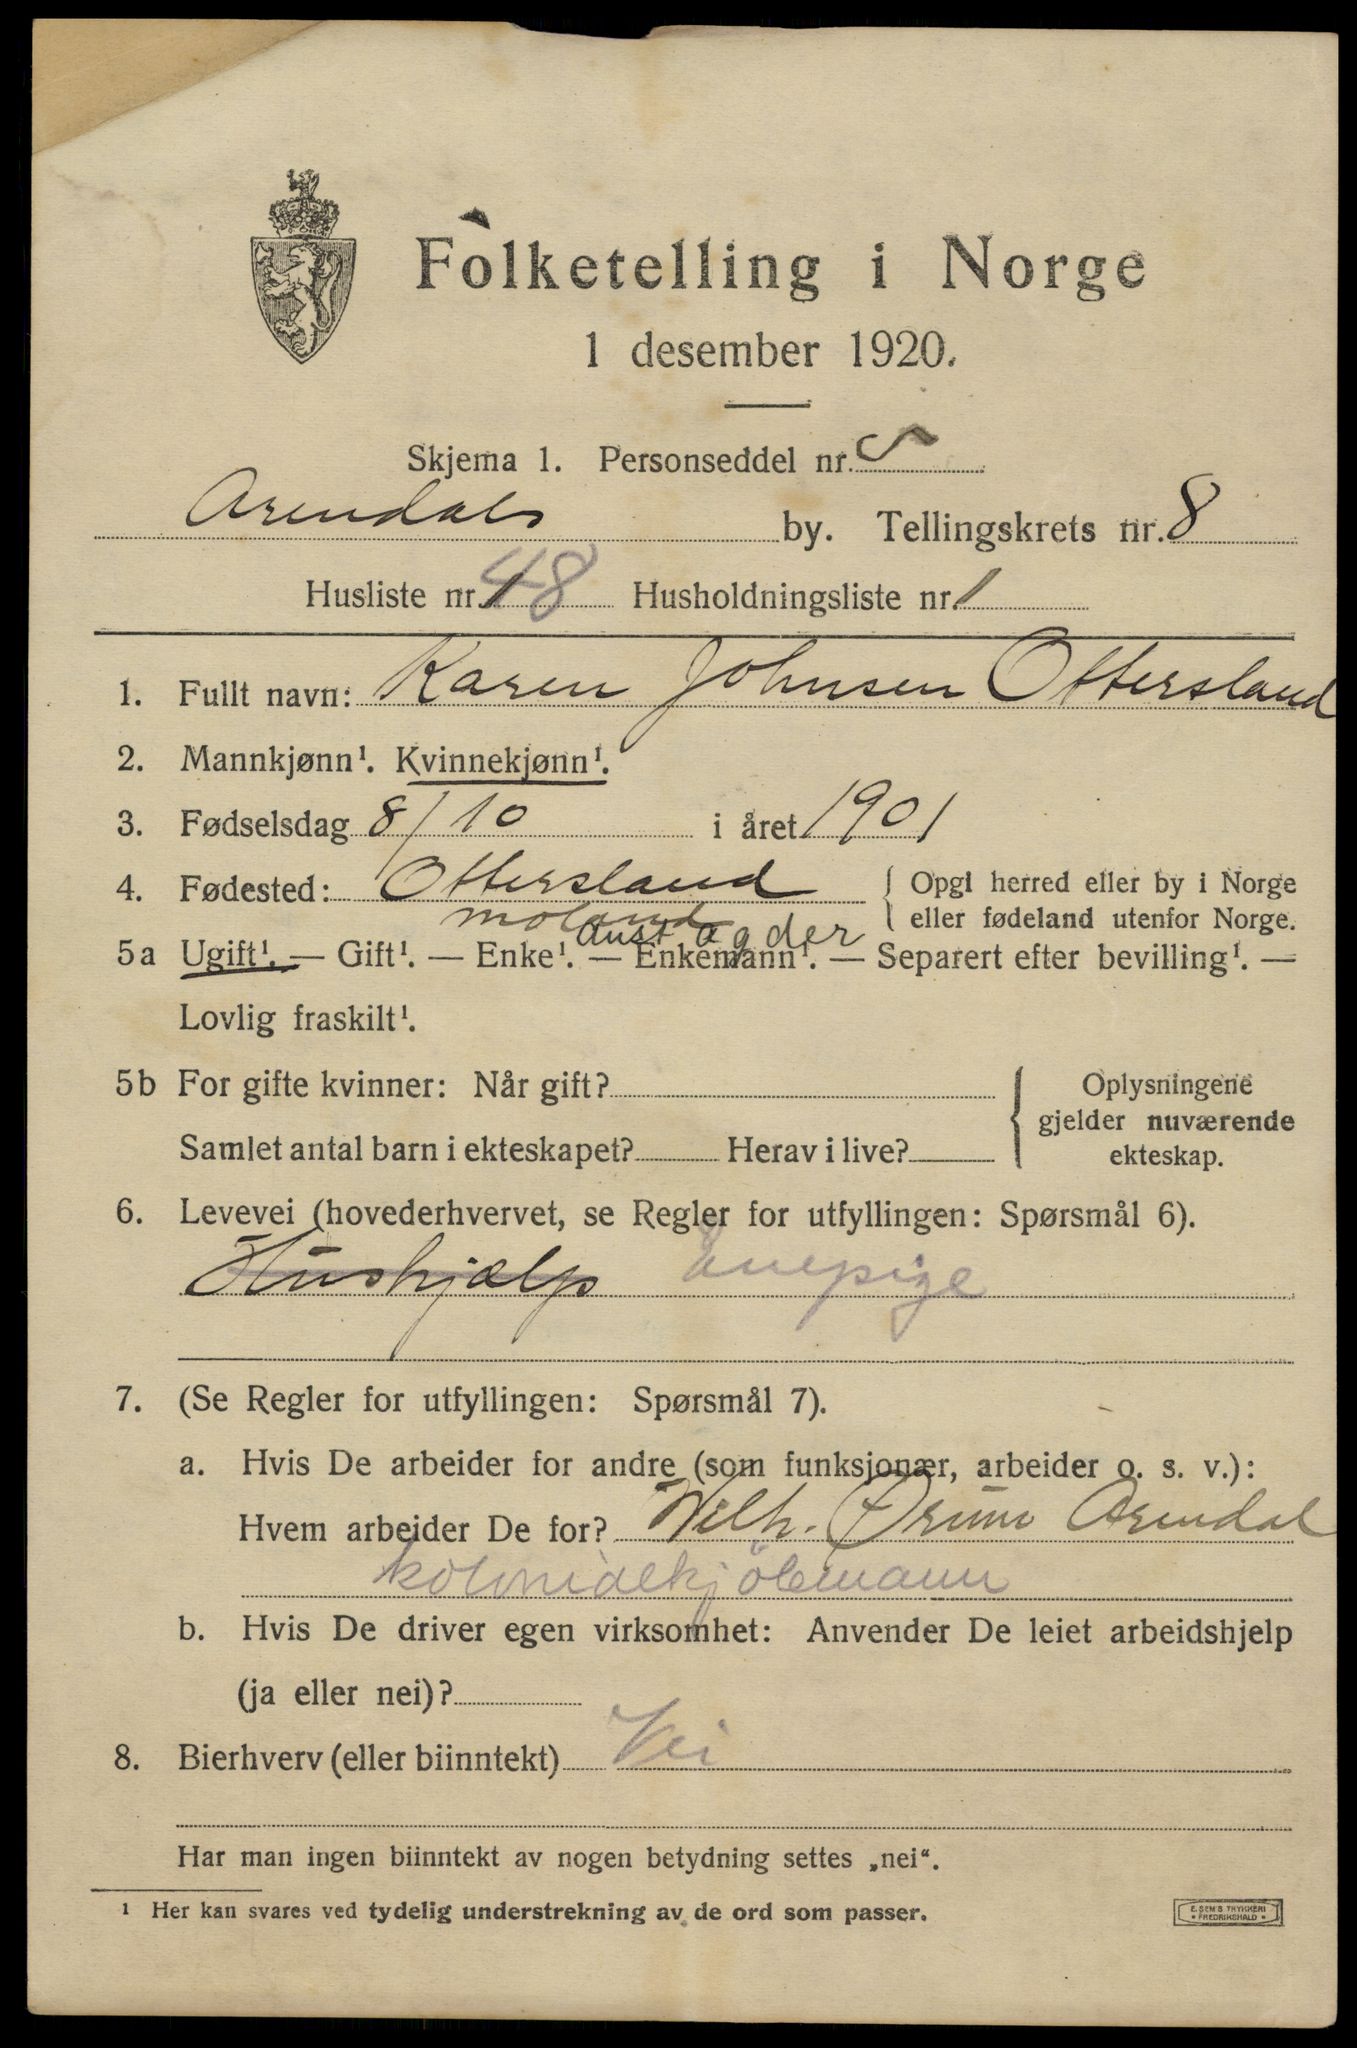 Folketelling i Norge
1 desember 1920.
Skjema 1. Personseddel nr. 5
Arendals by. Tellingskrets nr. 8
Husliste nr. 1 48 Husholdningsliste nr. 1
1. Fullt navn: Karen Johnsen Ottersland
2. Mannkjønn¹. Kvinnekjønn¹.
3. Fødselsdag 8/10 i året 1901
4. Fødested: Ottersland { Opgi herred eller by i Norge
eller fødeland utenfor Norge.
moland
Aust agder
5a Ugift¹. — Gift¹. — Enke¹. — Enkemann¹. — Separert efter bevilling¹. —
Lovlig fraskilt¹.
5b For gifte kvinner: Når gift?
Samlet antal barn i ekteskapet? Herav i live?
{ Oplysningene
gjelder nuværende
ekteskap.
6. Levevei (hovederhvervet, se Regler for utfyllingen: Spørsmål 6).
Hushjælp Enepige
7. (Se Regler for utfyllingen: Spørsmål 7).
a. Hvis De arbeider for andre (som funksjonær, arbeider o. s. v.):
Hvem arbeider De for? Wilh. Arendal
kolonialkjöbmann
b. Hvis De driver egen virksomhet: Anvender De leiet arbeidshjelp
(ja eller nei)?
8. Bierhverv (eller biinntekt) Nei
Har man ingen biinntekt av nogen betydning settes „nei“.
¹ Her kan svares ved tydelig understrekning av de ord som passer.
E. SEM'S TRYKKERI
• FREDRIKSHALD •